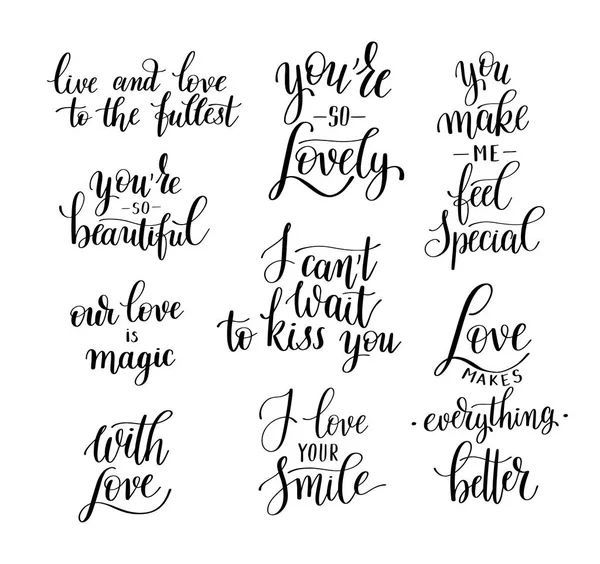 live and love
to the fullest
you're
-SO-
beautiful
our love
is
magic
with
love
you're
-SO-
Lovely
I can't
wait
to kiss you
I love
YOUR
Smile
you
make
-ME-
feel
Special
Love
MAKES
·everything·
better